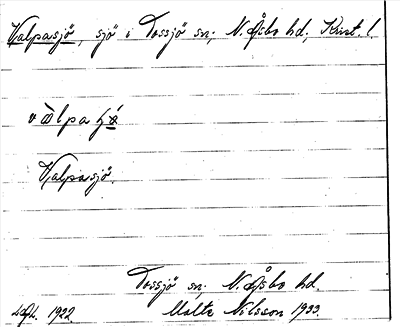 Valpasjö, sjö i Tossjö sn; N. Åsbo hd; Krist. l.
Valpasjö.
Tossjö sn; N. Åsbo hd.
1922. Malte Nilsson 1933.